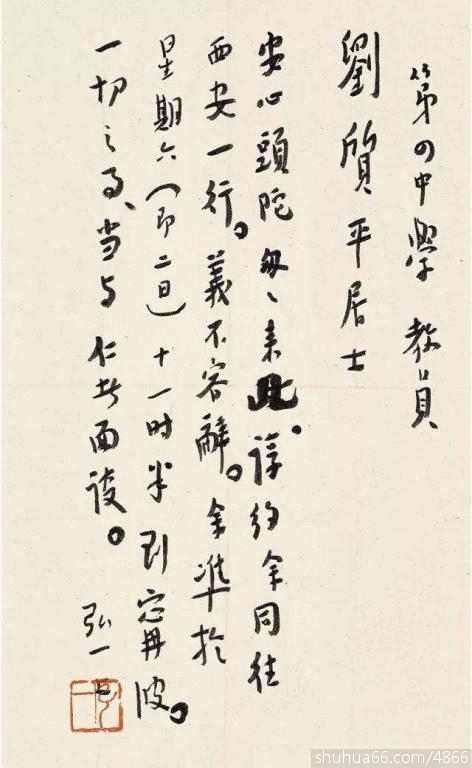 第四中學 教員
劉質平居士
安心頭陀匆、來此。諄約余同往
西安一行。義不容辭。余準於
星期六(即二日)十一时半到寧波。
一切之事、当与仁者面談。
弘一
shuhua66.com/4866